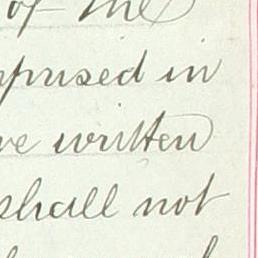 of the
prised in
ve written
shall not